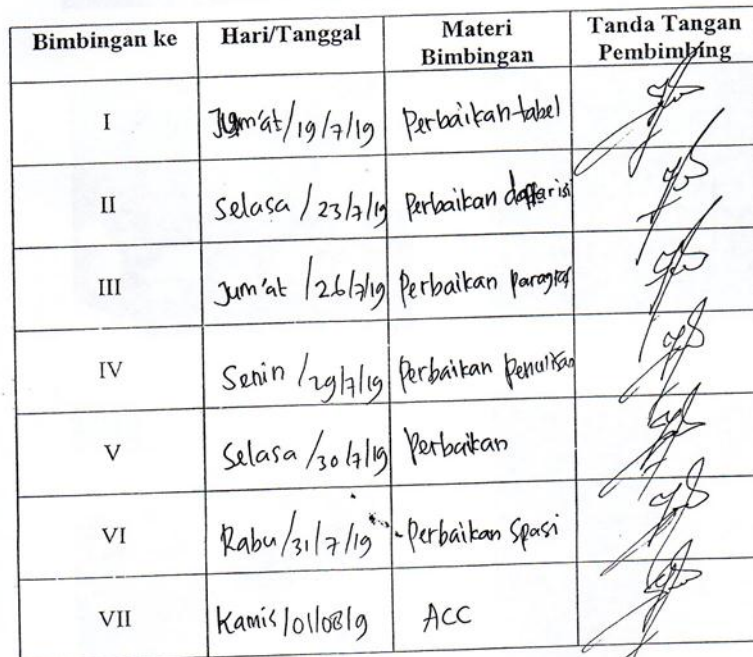 Bimbingan ke Hari/Tanggal Materi Bimbingan Tanda Tangan Pembimbing
I Jum'at/19/7/19 Perbaikan tabel
II Selasa / 23/7/19 Perbaikan daftar isi
III Jum'at /26/7/19 Perbaikan paragraf
IV Senin /29/7/19 Perbaikan Penulisan
V Selasa /30/7/19 Perbaikan
VI Rabu /31/7/19 Perbaikan Spasi
VII Kamis /01/08/9 ACC